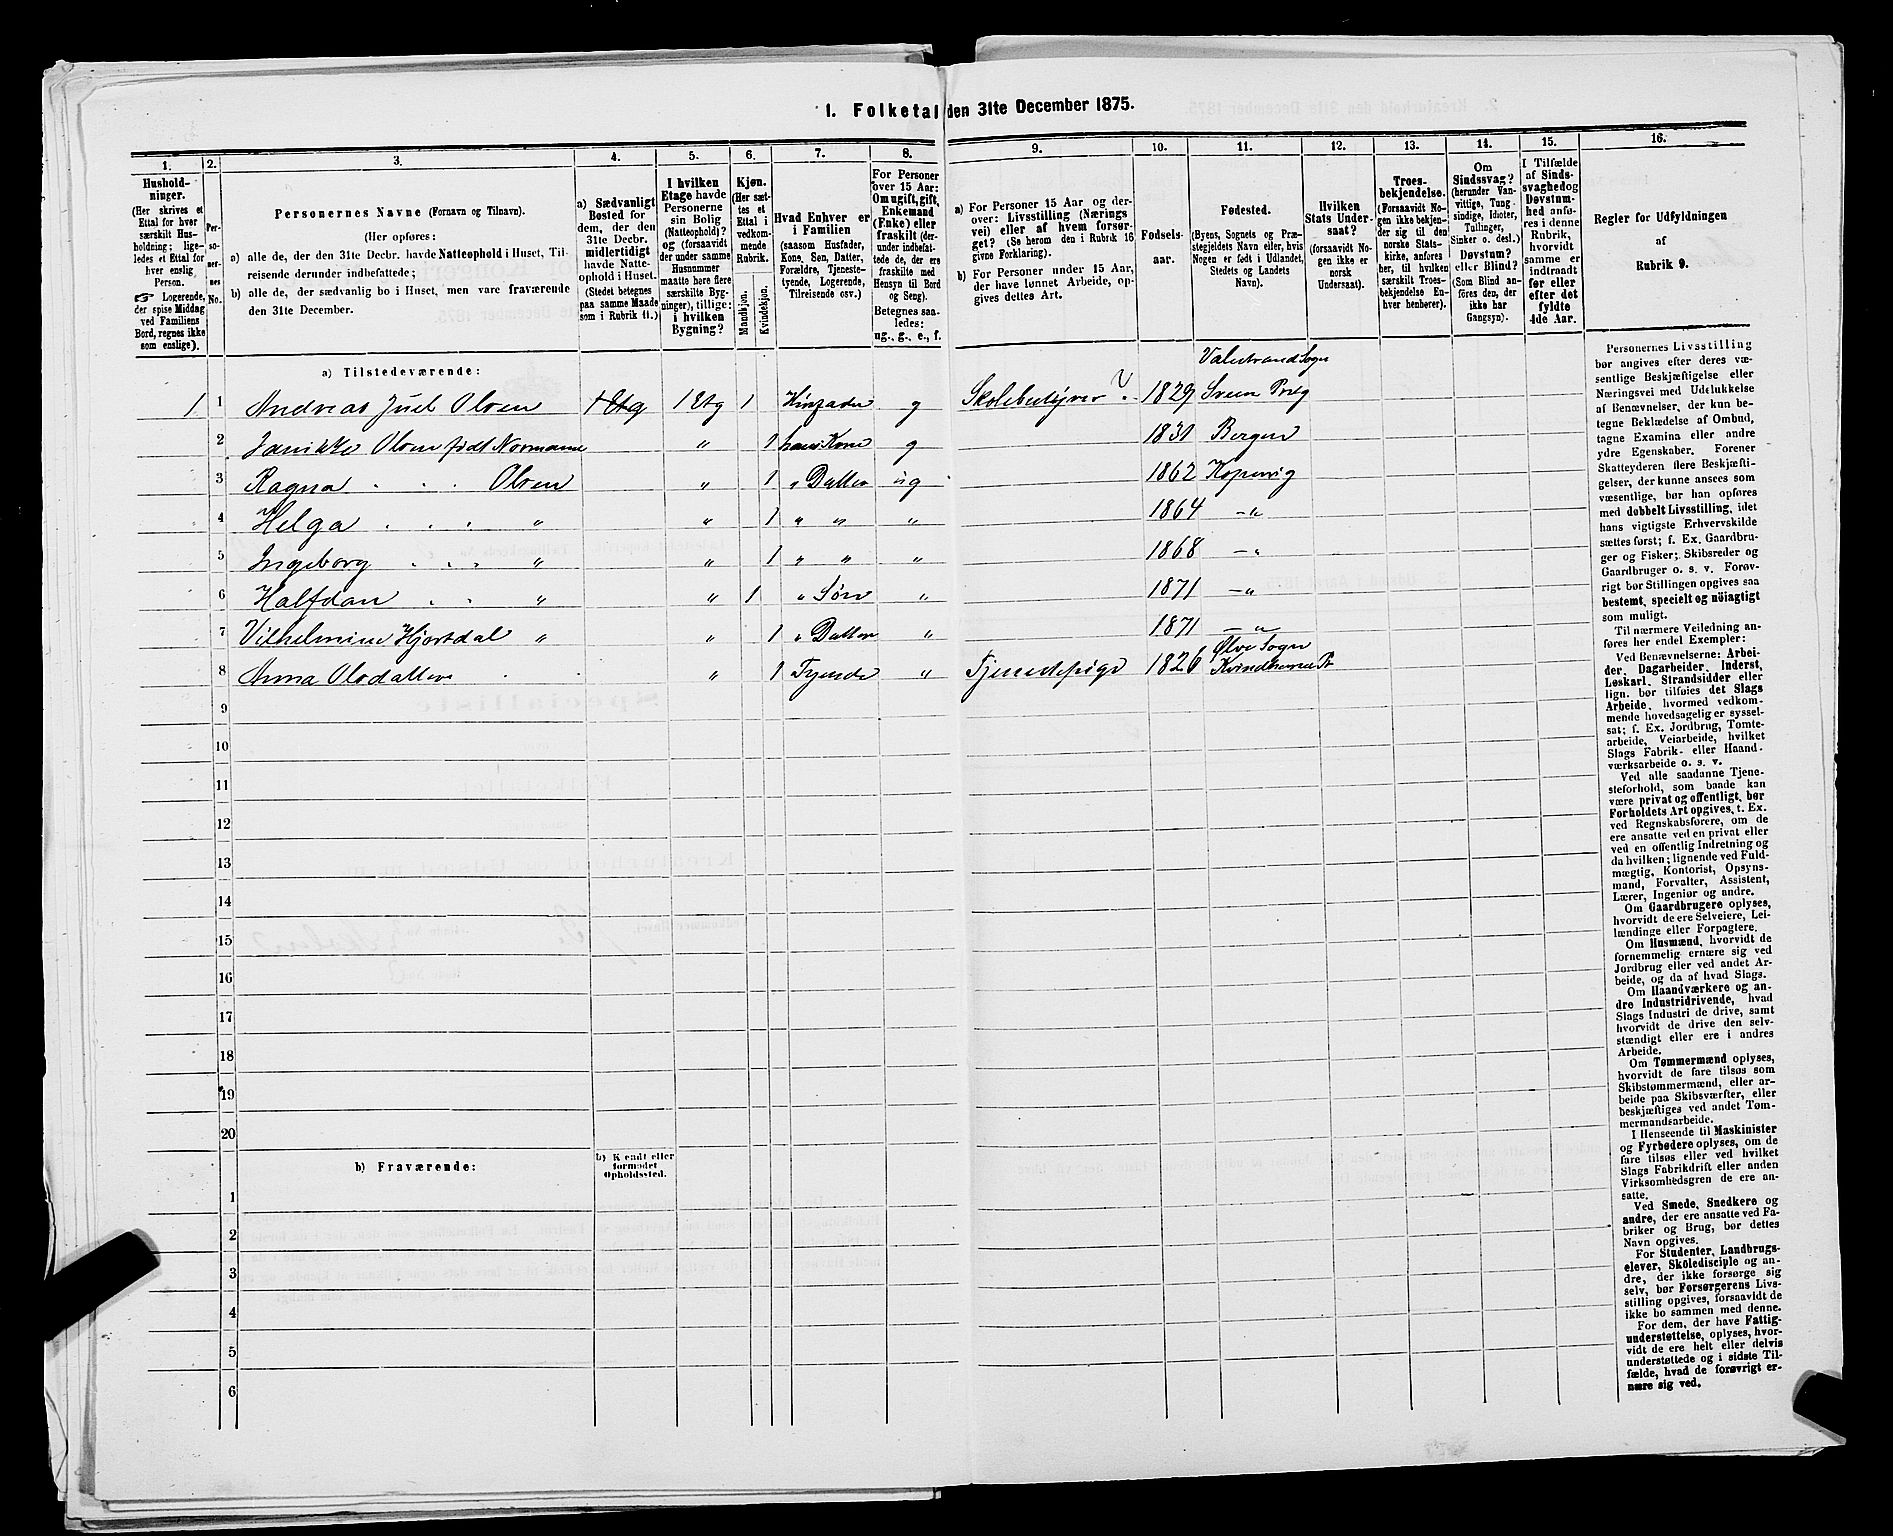 1. Folketal den 31te December 1875.
1.
2.
3.
4.
5.
6.
7.
8.
9.
10.
11.
12.
13.
14.
15.
16.
Hushold-
ninger.
(Her skrives et
Ettal for hver
særskilt Hus-
holdning; lige-
ledes et Ettal for
hver enslig
Person.
☞ Logerende,
der spise Middag
ved Familiens
Bord, regnes ikke
som enslige).
Per-
so-
ner-
nes
No.
Personernes Navne (Fornavn og Tilnavn).
(Her opføres:
a) alle de, der den 31te Decbr. havde Natteophold i Huset, Til-
reisende derunder indbefattede;
b) alle de, der sædvanlig bo i Huset, men vare fraværende
den 31te December.
a) Sædvanligt
Bosted for
dem, der den
31te Decbr.
midlertidigt
havde Natte-
ophold i Huset.
(Stedet betegnes
paa samme Maade
som i Rubrik 11.)
I hvilken
Etage havde
Personerne
sin Bolig
(Natteophold)?
og (forsaavidt
der under samme
Husnummer
maatte høre flere
særskilte Byg-
ninger), tillige:
i hvilken
Bygning?
Kjøn.
(Her sæt-
tes et
Ettal i
vedkom-
mende
Rubrik.
Mandkjøn.
Kvindekjøn.
Hvad Enhver er
i Familien
(saasom Husfader,
Kone, Søn, Datter,
Forældre, Tjeneste-
tyende, Logerende,
Tilreisende osv.)
For Personer
over 15 Aar:
Om ugift, gift,
Enkemand
(Enke) eller
fraskilt (der-
under indbefat-
tede de, der ere
fraskilte med
Hensyn til Bord
og Seng).
Betegnes saa-
ledes:
ug., g., e., f.
a) For Personer 15 Aar og der-
over: Livsstilling (Nærings
vei) eller af hvem forsør-
get? (Se herom den i Rubrik 16
givne Forklaring).
b) For Personer under 15 Aar,
der have lønnet Arbeide, op-
gives dettes Art.
Fødsels-
aar.
Fødested.
(Byens, Sognets og Præ-
stegjeldets Navn eller, hvis
Nogen er født i Udlandet,
Stedets og Landets
Navn).
Hvilken
Stats Under-
saat?
(forsaavidt No-
gen ikke er
norsk
Undersaat).
Troes-
bekjendelse.
(Forsaavidt No-
gen ikke bekjen-
der sig til den
norske Stats-
kirke, anføres
her, til hvilken
særskilt Troes-
bekjendelse En-
hver henhører).
Om
Sindssvag?
(herunder Van-
vittige, Tung-
sindige, Idioter,
Tullinger,
Sinker o. desl.)
Døvstum?
eller Blind?
(Som Blind an-
føres den, der
ikke har
Gangsyn).
I Tilfælde
af Sinds-
svaghed og
Døvstum-
hed anfø-
res i denne
Rubrik,
hvorvidt
samme er
indtraadt
før eller
efter det
fyldte
4de Aar.
Regler for Udfyldningen
af
Rubrik 9.
a) Tilstedeværende:
Valestrand Sogn
1 1 Andreas Juel Olsen 1 Etg 1 Etg 1 Husfader g Skolebestyrer 1829 Sveen Prstg
2 Janikke Olsen født Normann " 1 hans Kone g 1831 Bergen
3 Ragna . . . Olsen " 1 " Datter ug 1862 Kopervig
4 Helga . . . " " 1 " " " 1864 -"
5 Ingeborg . . . " " 1 " " " 1868 -"
6 Halfdan . . " " 1 " Søn " 1871 -"
7 Vilhelmine Hjortdal " " 1 " Datter " 1871 -"
Ølve Sogn
8 Anna Olsdatter . . " 1 Tyende " Tjenestepige 1826 Kvindherred Pr
9
10
11
12
13
14
15
16
17
18
19
20
b) Fraværende:
b) Kjendt eller
formodet
Opholdssted.
1
2
3
4
5
6
Personernes Livsstilling
bør angives efter deres væ-
sentlige Beskjæftigelse eller
Næringsvei med Udelukkelse
af Benævnelser, der kun be-
tegne Beklædelse af Ombud,
tagne Examina eller andre
ydre Egenskaber. Forener
Skatteyderen flere Beskjæfti-
gelser, der kunne ansees som
væsentlige, bør han opføres
med dobbelt Livsstilling, idet
hans vigtigste Erhvervskilde
sættes først; f. Ex. Gaardbru-
ger og Fisker; Skibsreder og
Gaardbruger o. s. v. Forøv-
rigt bør Stillingen opgives saa
bestemt, specielt og nöiagtigt
som muligt.
Til nærmere Veiledning an-
føres her endel Exempler:
Ved Benævnelserne: Arbei-
der, Dagarbeider, Inderst,
Løskarl, Strandsidder eller
lign. bør tilføies det Slags
Arbeide, hvormed vedkom-
mende hovedsagelig er syssel-
sat; f. Ex. Jordbrug, Tomte-
arbeide, Veiarbeide, hvilket
Slags Fabrik- eller Haand-
værksarbeide o. s. v.
Ved alle saadanne Tjene-
steforhold, som baade kan
være privat og offentligt, bør
Forholdets Art opgives, t. Ex.
ved Regnskabsførere, om de
ere ansatte ved en privat eller
ved en offentlig Indretning og
da hvilken; lignende ved Fuld-
mægtig, Kontorist, Opsyns-
mand, Forvalter, Assistent,
Lærer, Ingeniør og andre.
Om Gaardbrugere oplyses,
hvorvidt de ere Selveiere, Lei-
lændinge eller Forpagtere.
Om Husmænd, hvorvidt de
fornemmelig ernære sig ved
Jordbrug eller ved andet Ar-
beide, og da af hvad Slags.
Om Haandværkere og an-
dre Industridrivende, hvad
Slags Industri de drive, samt
hvorvidt de drive den selv-
stændigt eller ere i andres
Arbeide.
Om Tømmermænd oplyses,
hvorvidt de fare tilsøs som
Skibstømmermænd, eller ar-
beide paa Skibsværfter, eller
beskjæftiges ved andet Tøm-
mermandsarbeide.
I Henseende til Maskinister
og Fyrbødere oplyses, om de
fare tilsøs eller ved hvilket
Slags Fabrikdrift eller anden
Virksomhedsgren de ere an-
satte.
Ved Smede, Snedkere og
andre, der ere ansatte ved Fa-
briker og Brug, bør dettes
Navn opgives.
For Studenter, Landbrugs-
elever, Skoledisciple og an-
dre, der ikke forsørge sig
selv, bør Forsørgerens Livs-
stilling opgives, forsaavidt de
ikke bo sammen med denne.
For dem, der have Fattig-
understøttelse, oplyses, hvor-
vidt de ere helt eller delvis
understøttede og i sidste Til-
fælde, hvad de forøvrigt er-
nære sig ved.